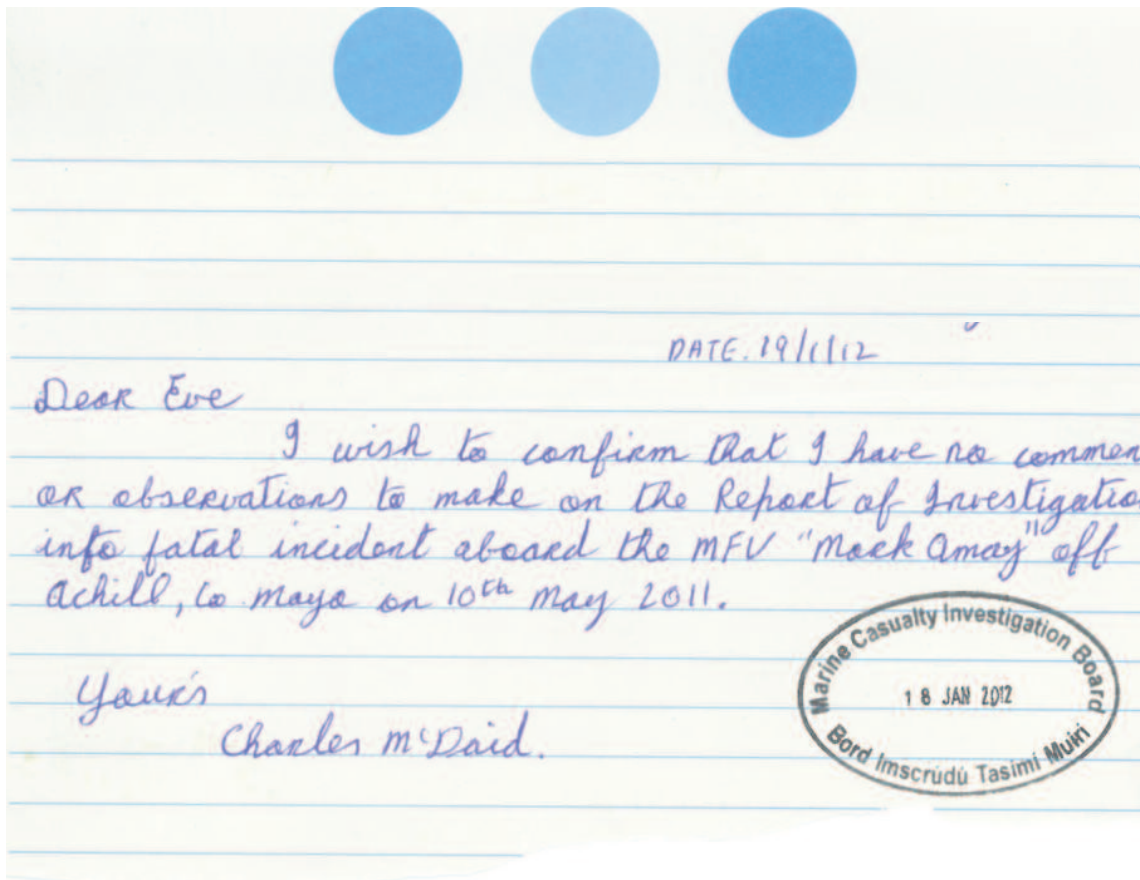 DATE. 19/1/12
Dear Eve
I wish to confirm that I have no commen
or observations to make on the Report of Investigatio
into fatal incident aboard the MFV "Mark Amay" off
Achill, Co Mayo on 10th May 2011.
Your's
Charles McDaid.
Marine Casualty Investigation Board
18 JAN 2012
Bord Imscrúdú Taismí Muirí